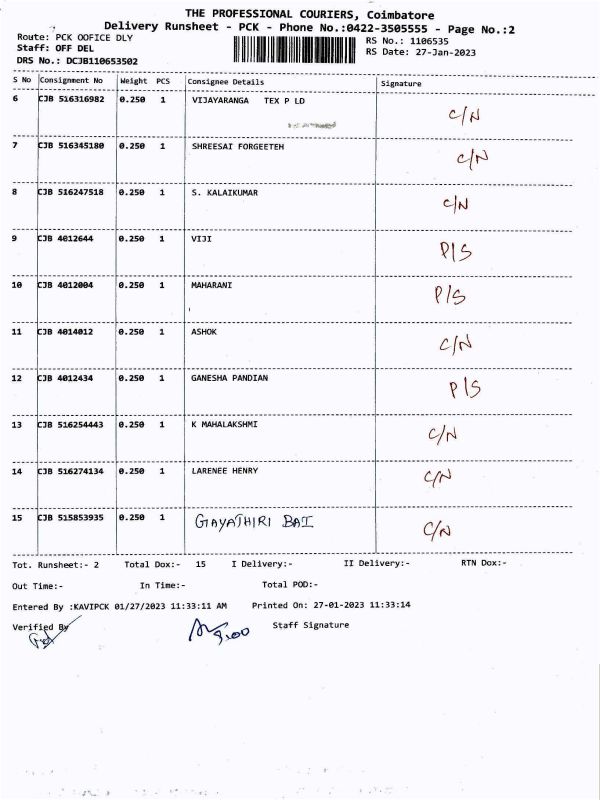 THE PROFESSIONAL COURIERS, Coimbatore
Delivery Runsheet - PCK - Phone No.:0422-3505555 - Page No.:2
Route: PCK OOFICE DLY
RS No.: 1106535
Staff: OFF DEL
RS Date: 27-Jan-2023
DRS No.: DCJB110653502
S No Consignment No Weight PCS Consignee Details Signature
6 CJB 516316982 0.250 1 VIJAYARANGA TEX P LD C/N
7 CJB 516345180 0.250 1 SHREESAI FORGEETEH C/N
8 CJB 516247518 0.250 1 S. KALAIKUMAR C/N
9 CJB 4012644 0.250 1 VIJI P/S
10 CJB 4012004 0.250 1 MAHARANI P/S
11 CJB 4014012 0.250 1 ASHOK C/N
12 CJB 4012434 0.250 1 GANESHA PANDIAN P/S
13 CJB 516254443 0.250 1 K MAHALAKSHMI C/N
14 CJB 516274134 0.250 1 LARENEE HENRY C/N
15 CJB 515853935 0.250 1 GAYATHIRI BAI C/N
Tot. Runsheet:- 2 Total Dox:- 15 I Delivery:- II Delivery:- RTN Dox:-
Out Time:- In Time:- Total POD:-
Entered By :KAVIPCK 01/27/2023 11:33:11 AM Printed On: 27-01-2023 11:33:14
Verified By Staff Signature